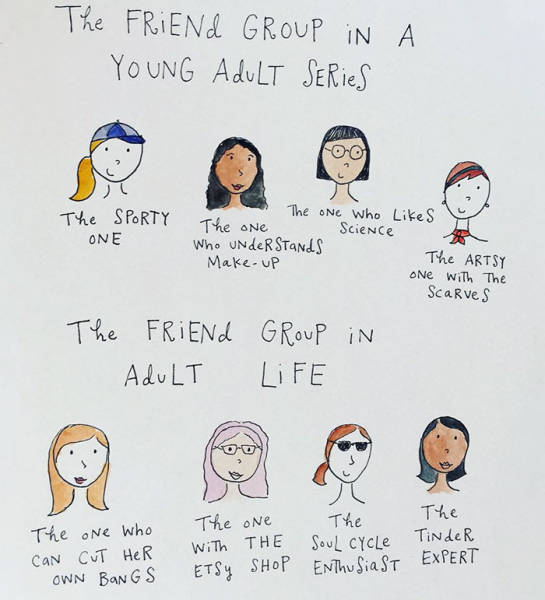 The FRiENd GROUP iN A
YOUNG AduLT SERiES
The SPORTY
ONE
The ONE
Who UNdeRSTANdS
MAke-UP
The ONE Who Likes
SCiENCE
The ARTSY
ONE WiTH The
SCARVES
The FRiENd GROUP iN
AduLT LiFE
The ONE Who
CAN CUT HeR
OWN BANGS
The ONE
WiTH THE
ETSy SHOP
The
SOUL CYCLE
ENThuSiAST
The
TiNdeR
EXPERT